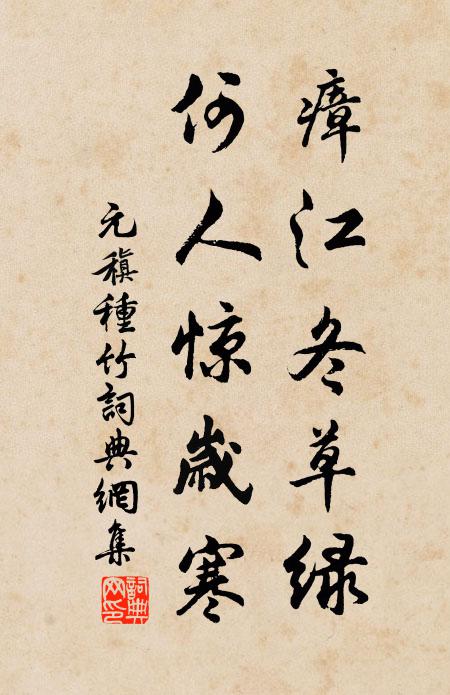 瘴江冬草绿
何人惊歲寒
元稹種竹詞典網集
詞典网印